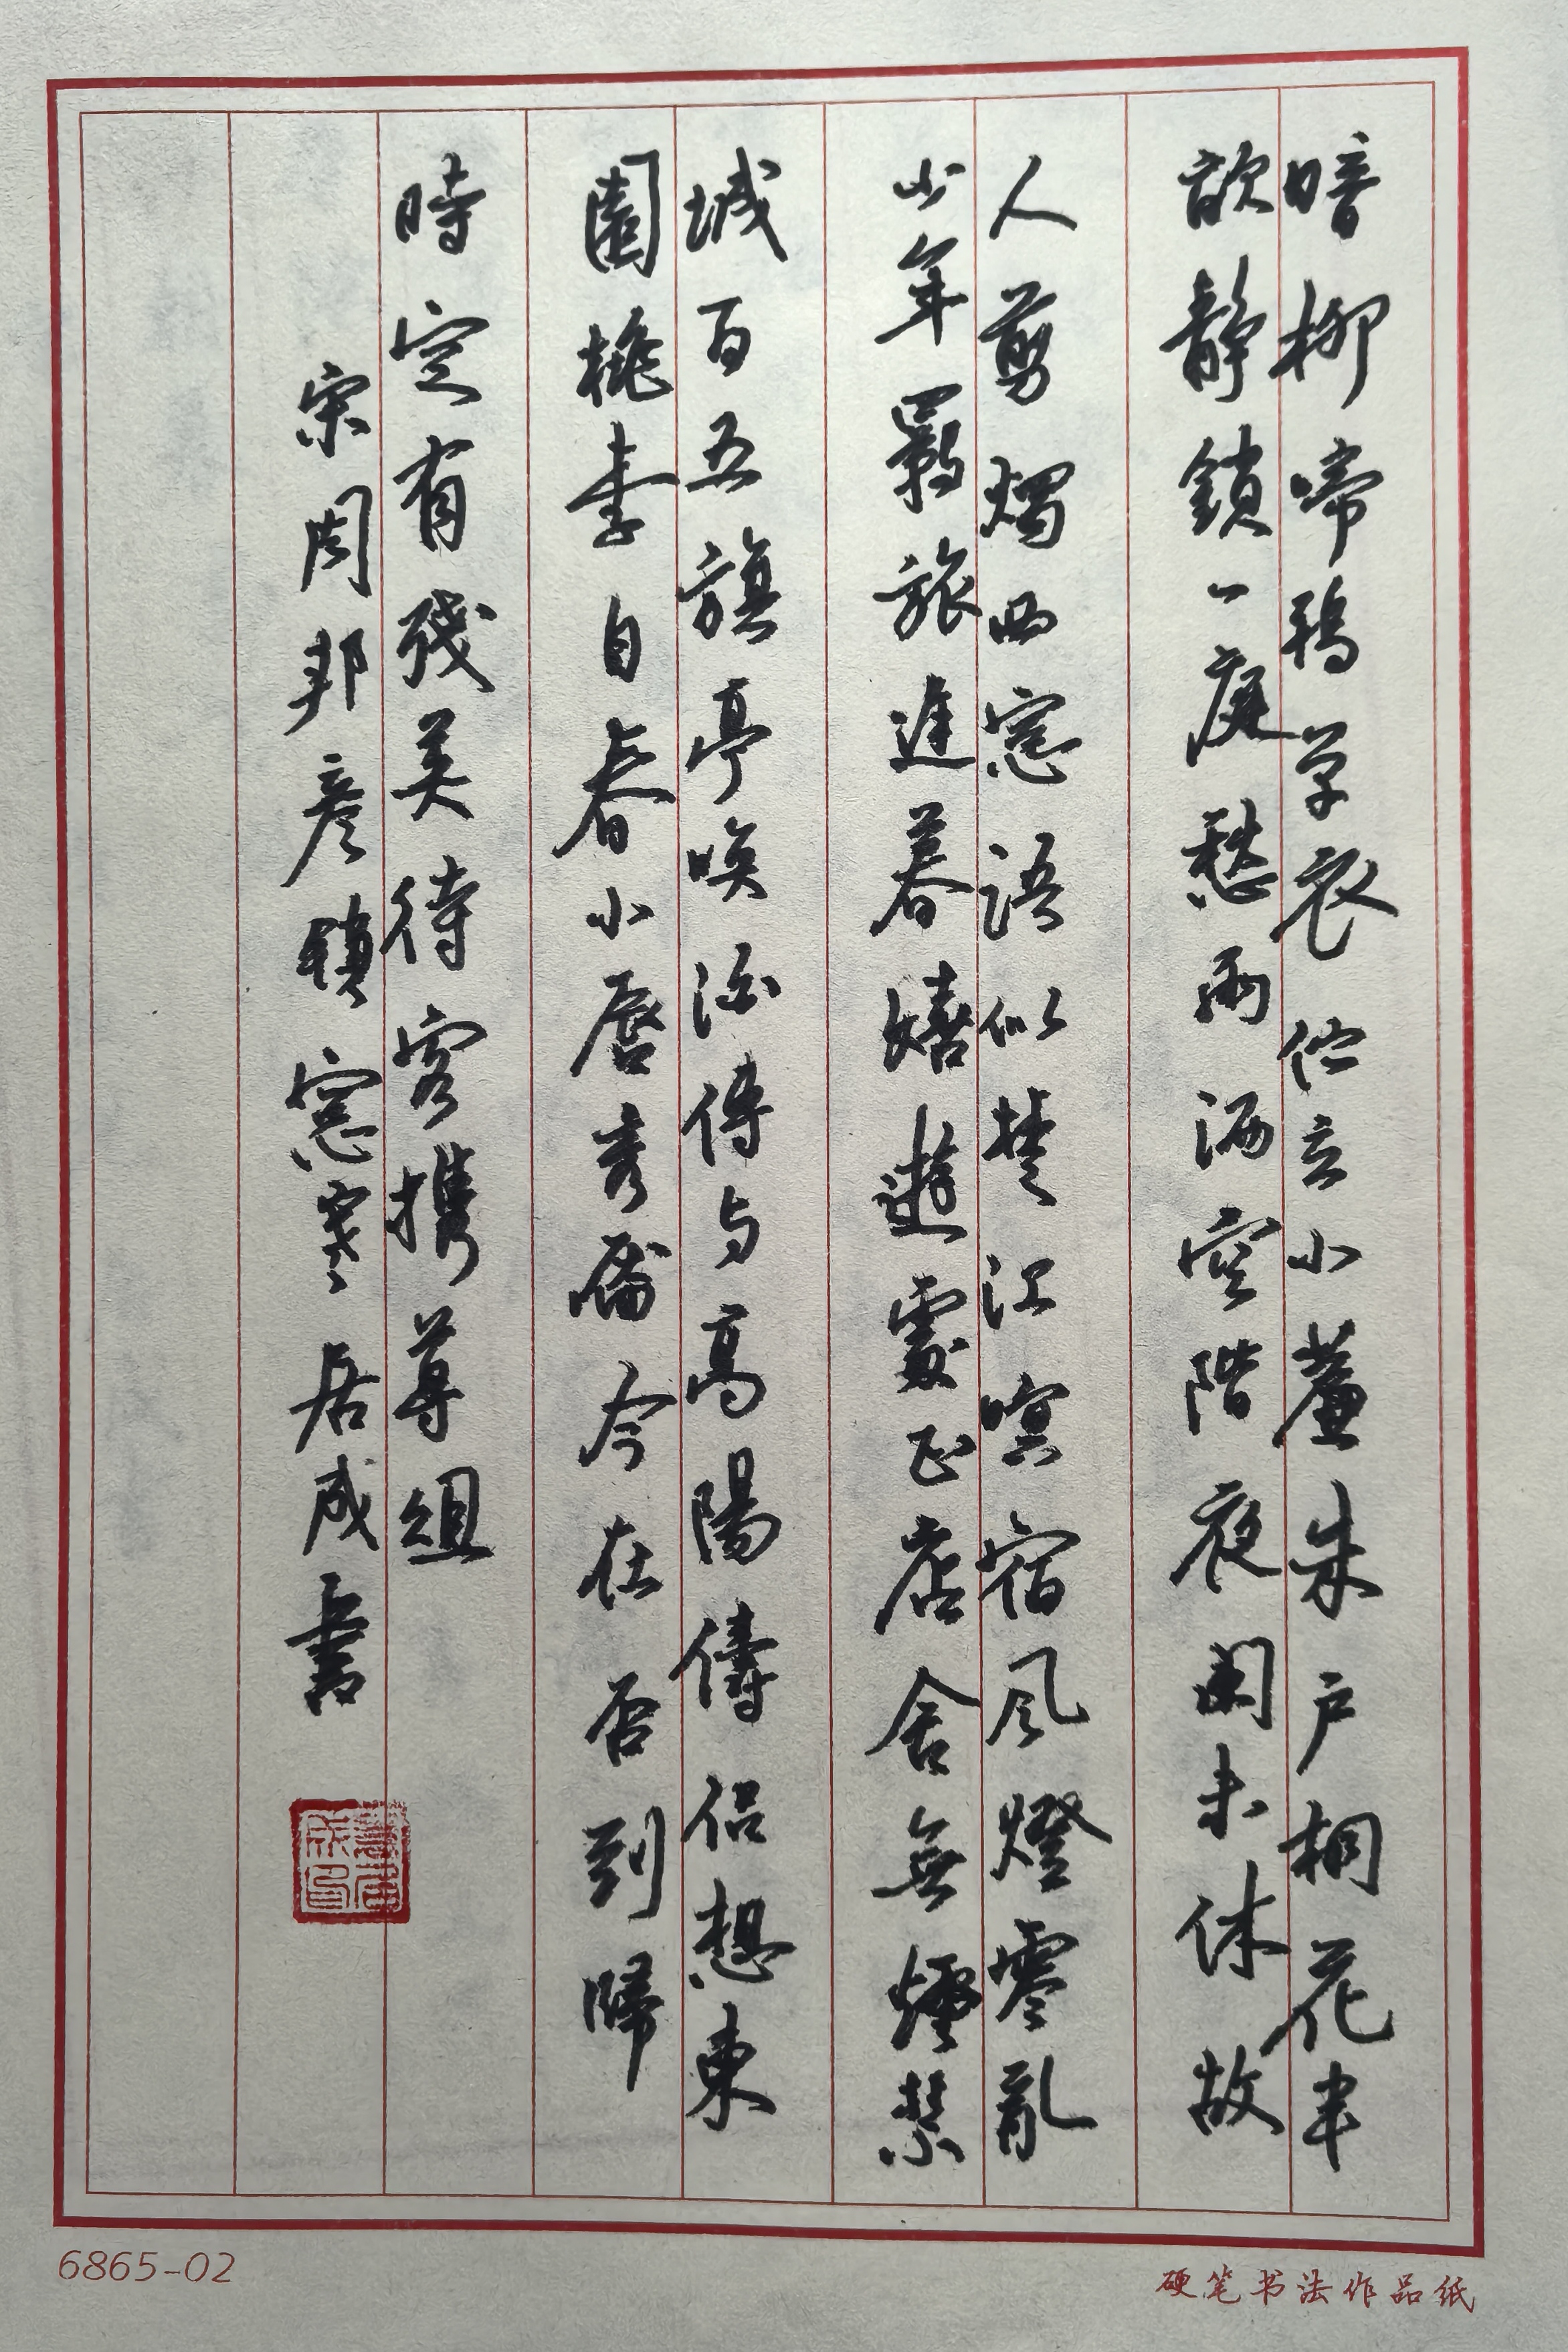 暗柳啼鴉单衣伫立小簾朱户桐花半
畝静鎖一庭愁雨洒空階夜闌未休故
人剪燭西窗語似楚江暝宿风燈零亂
少年羈旅遲暮嬉遊處正店舍無煙禁
城百五旗亭唤酒傳与高陽儔侣想東
園桃李自春小唇秀靨今在否到歸
時定有残英待客携尊俎
宋周邦彦鎖窗寒居成書
6865-02
硬笔书法作品纸